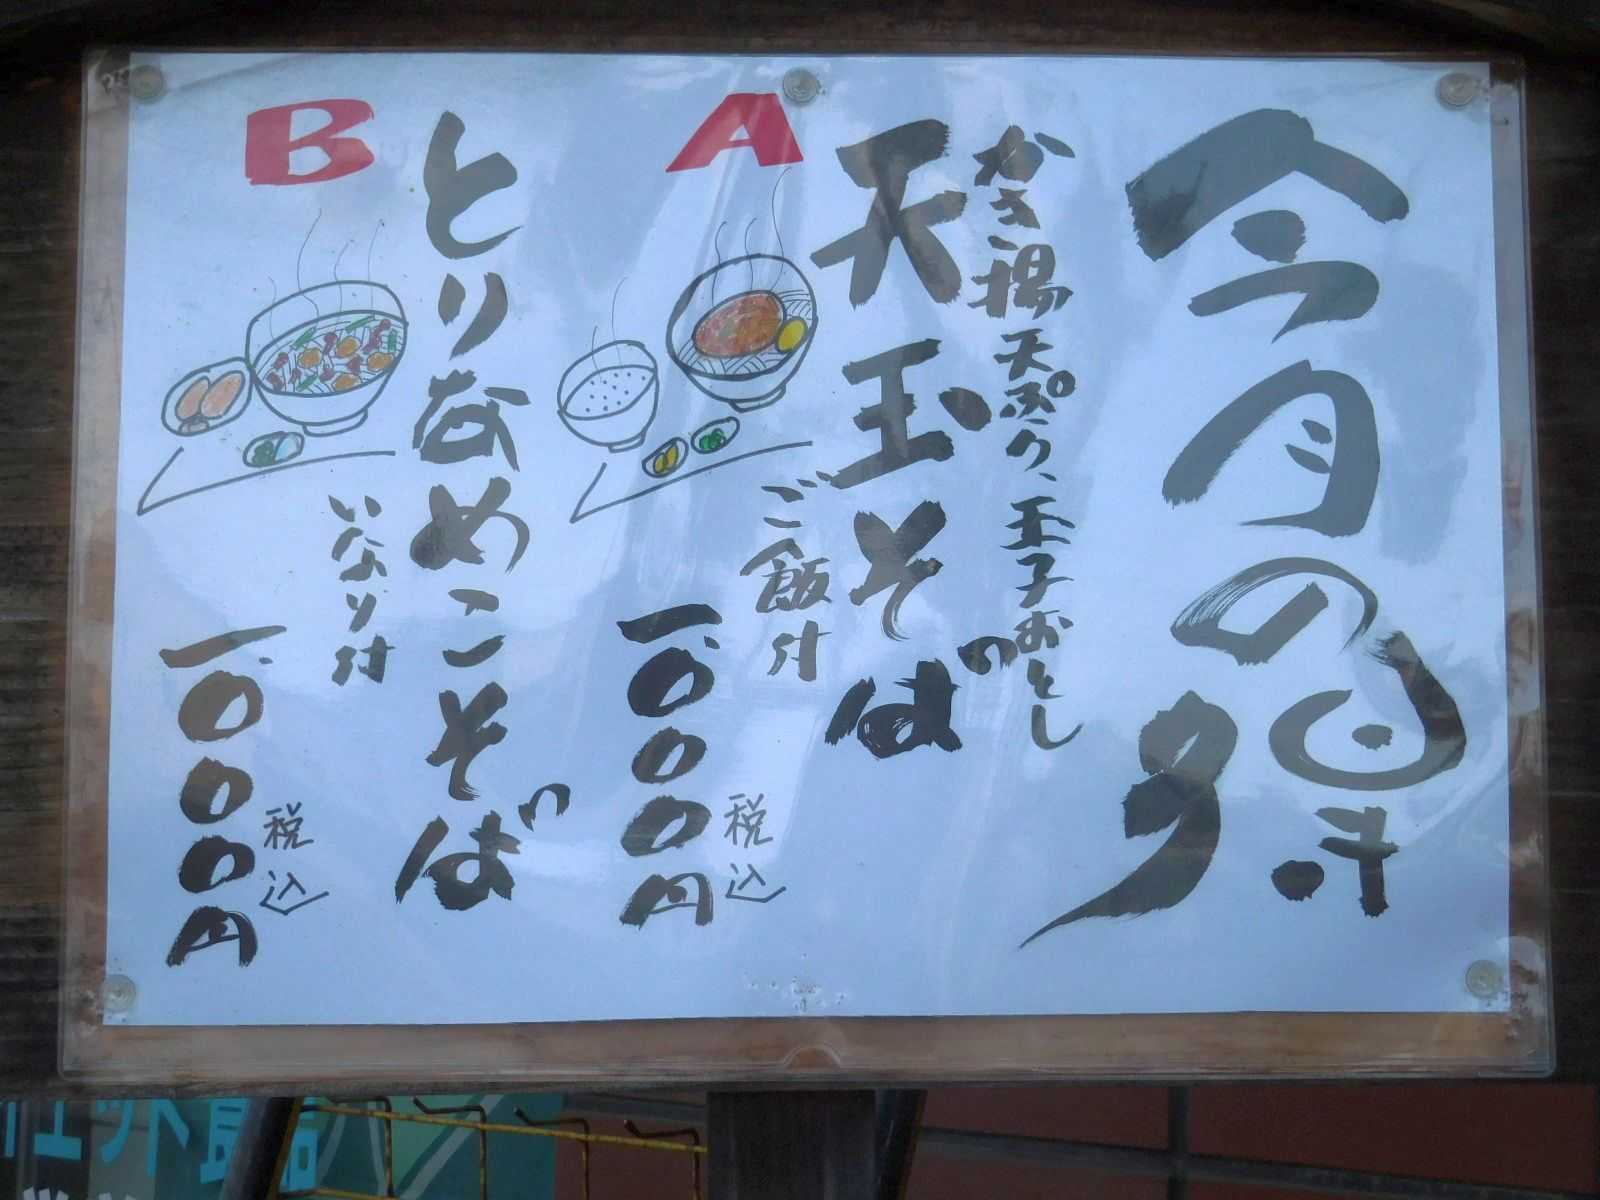 今月の昼夕
かき揚天ぷら、玉子おとし
A
天玉そば
ご飯付
一、〇〇〇円
税込
B
とりなめこそば
いなり付
一、〇〇〇円
税込